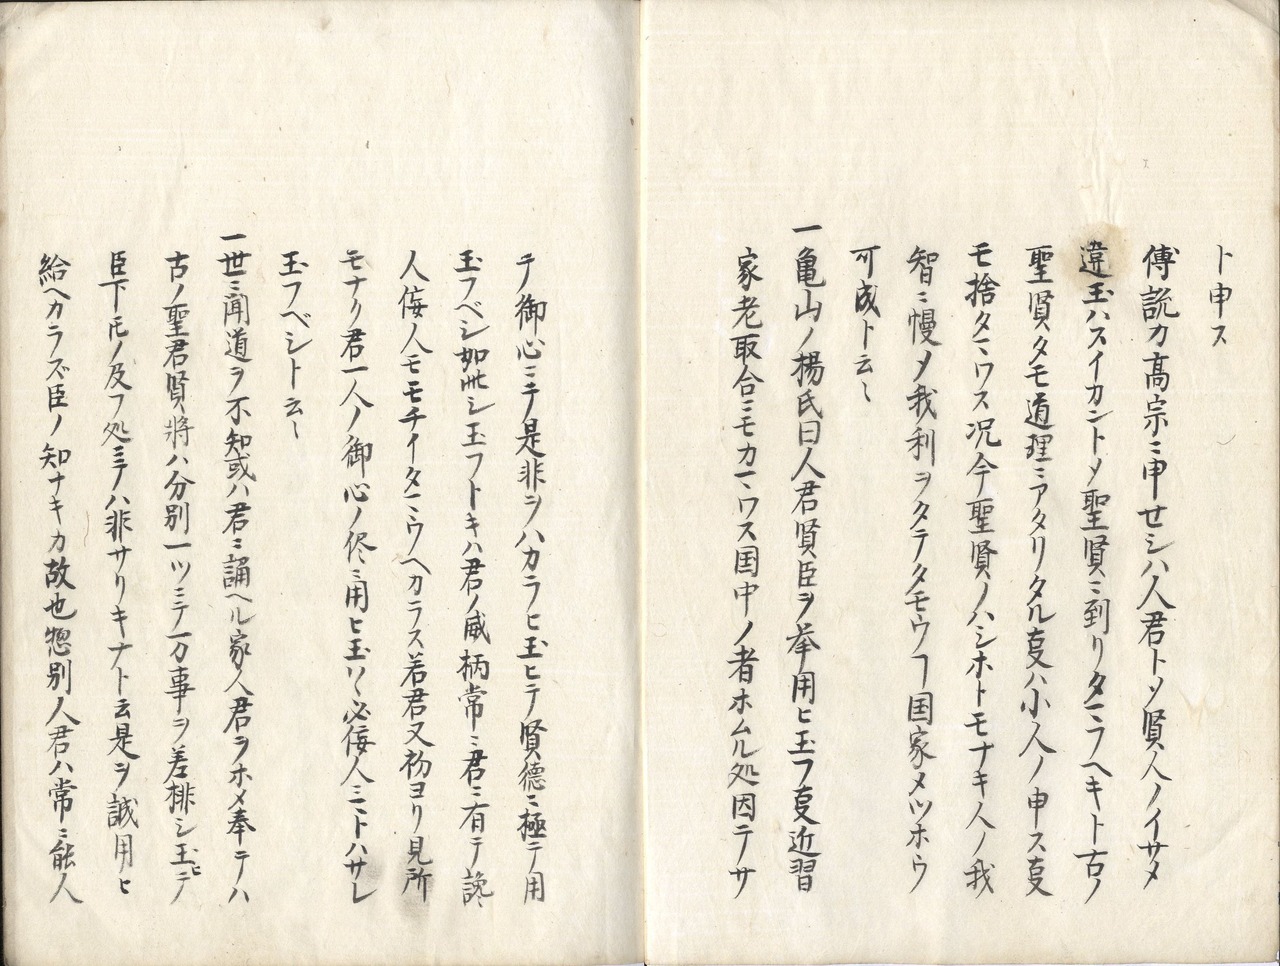 ト申ス
傅説カ高宗ニ申せシハ人君トメ賢人ノイサメ
違玉ハスイカントメ聖賢ニ到リタマフヘキト古ノ
聖賢タモ道理ニアタリタル叓ハ小人ノ申ス叓
モ捨タマワス况今聖賢ノハシホトモナキ人ノ我
智ニ慢メ我利ヲタテタモウヿ国家メツホウ
可成ト云〻
一亀山ノ楊氏曰人君賢臣ヲ挙用ヒ玉フ叓近習
家老取合ニモカマワス国中ノ者ホムル処因テサ
テ御心ニテ是非ヲハカラヒ玉ヒテ賢徳ニ極テ用
玉フベシ如此シ玉フトキハ君ノ威柄常ニ君ニ有テ讒
人侫人モモチイタマウヘカラス若君又初ヨリ見所
モナリ君一人ノ御心ノ侭ニ用ヒ玉ハ〻必侫人ニミトハサレ
玉フベシト云〻
一世ニ聞道ヲ不知或ハ君ニ誦ヘル家人君ヲホメ奉テハ
古ノ聖君賢將ハ分別一ツニテ万事ヲ差排シ玉ヒテ
臣下𪜈ノ及フ処ニテハ非サリキナト云是ヲ誠用ヒ
給ヘカラズ臣ノ知ナキカ故也惣別人君ハ常ニ能人